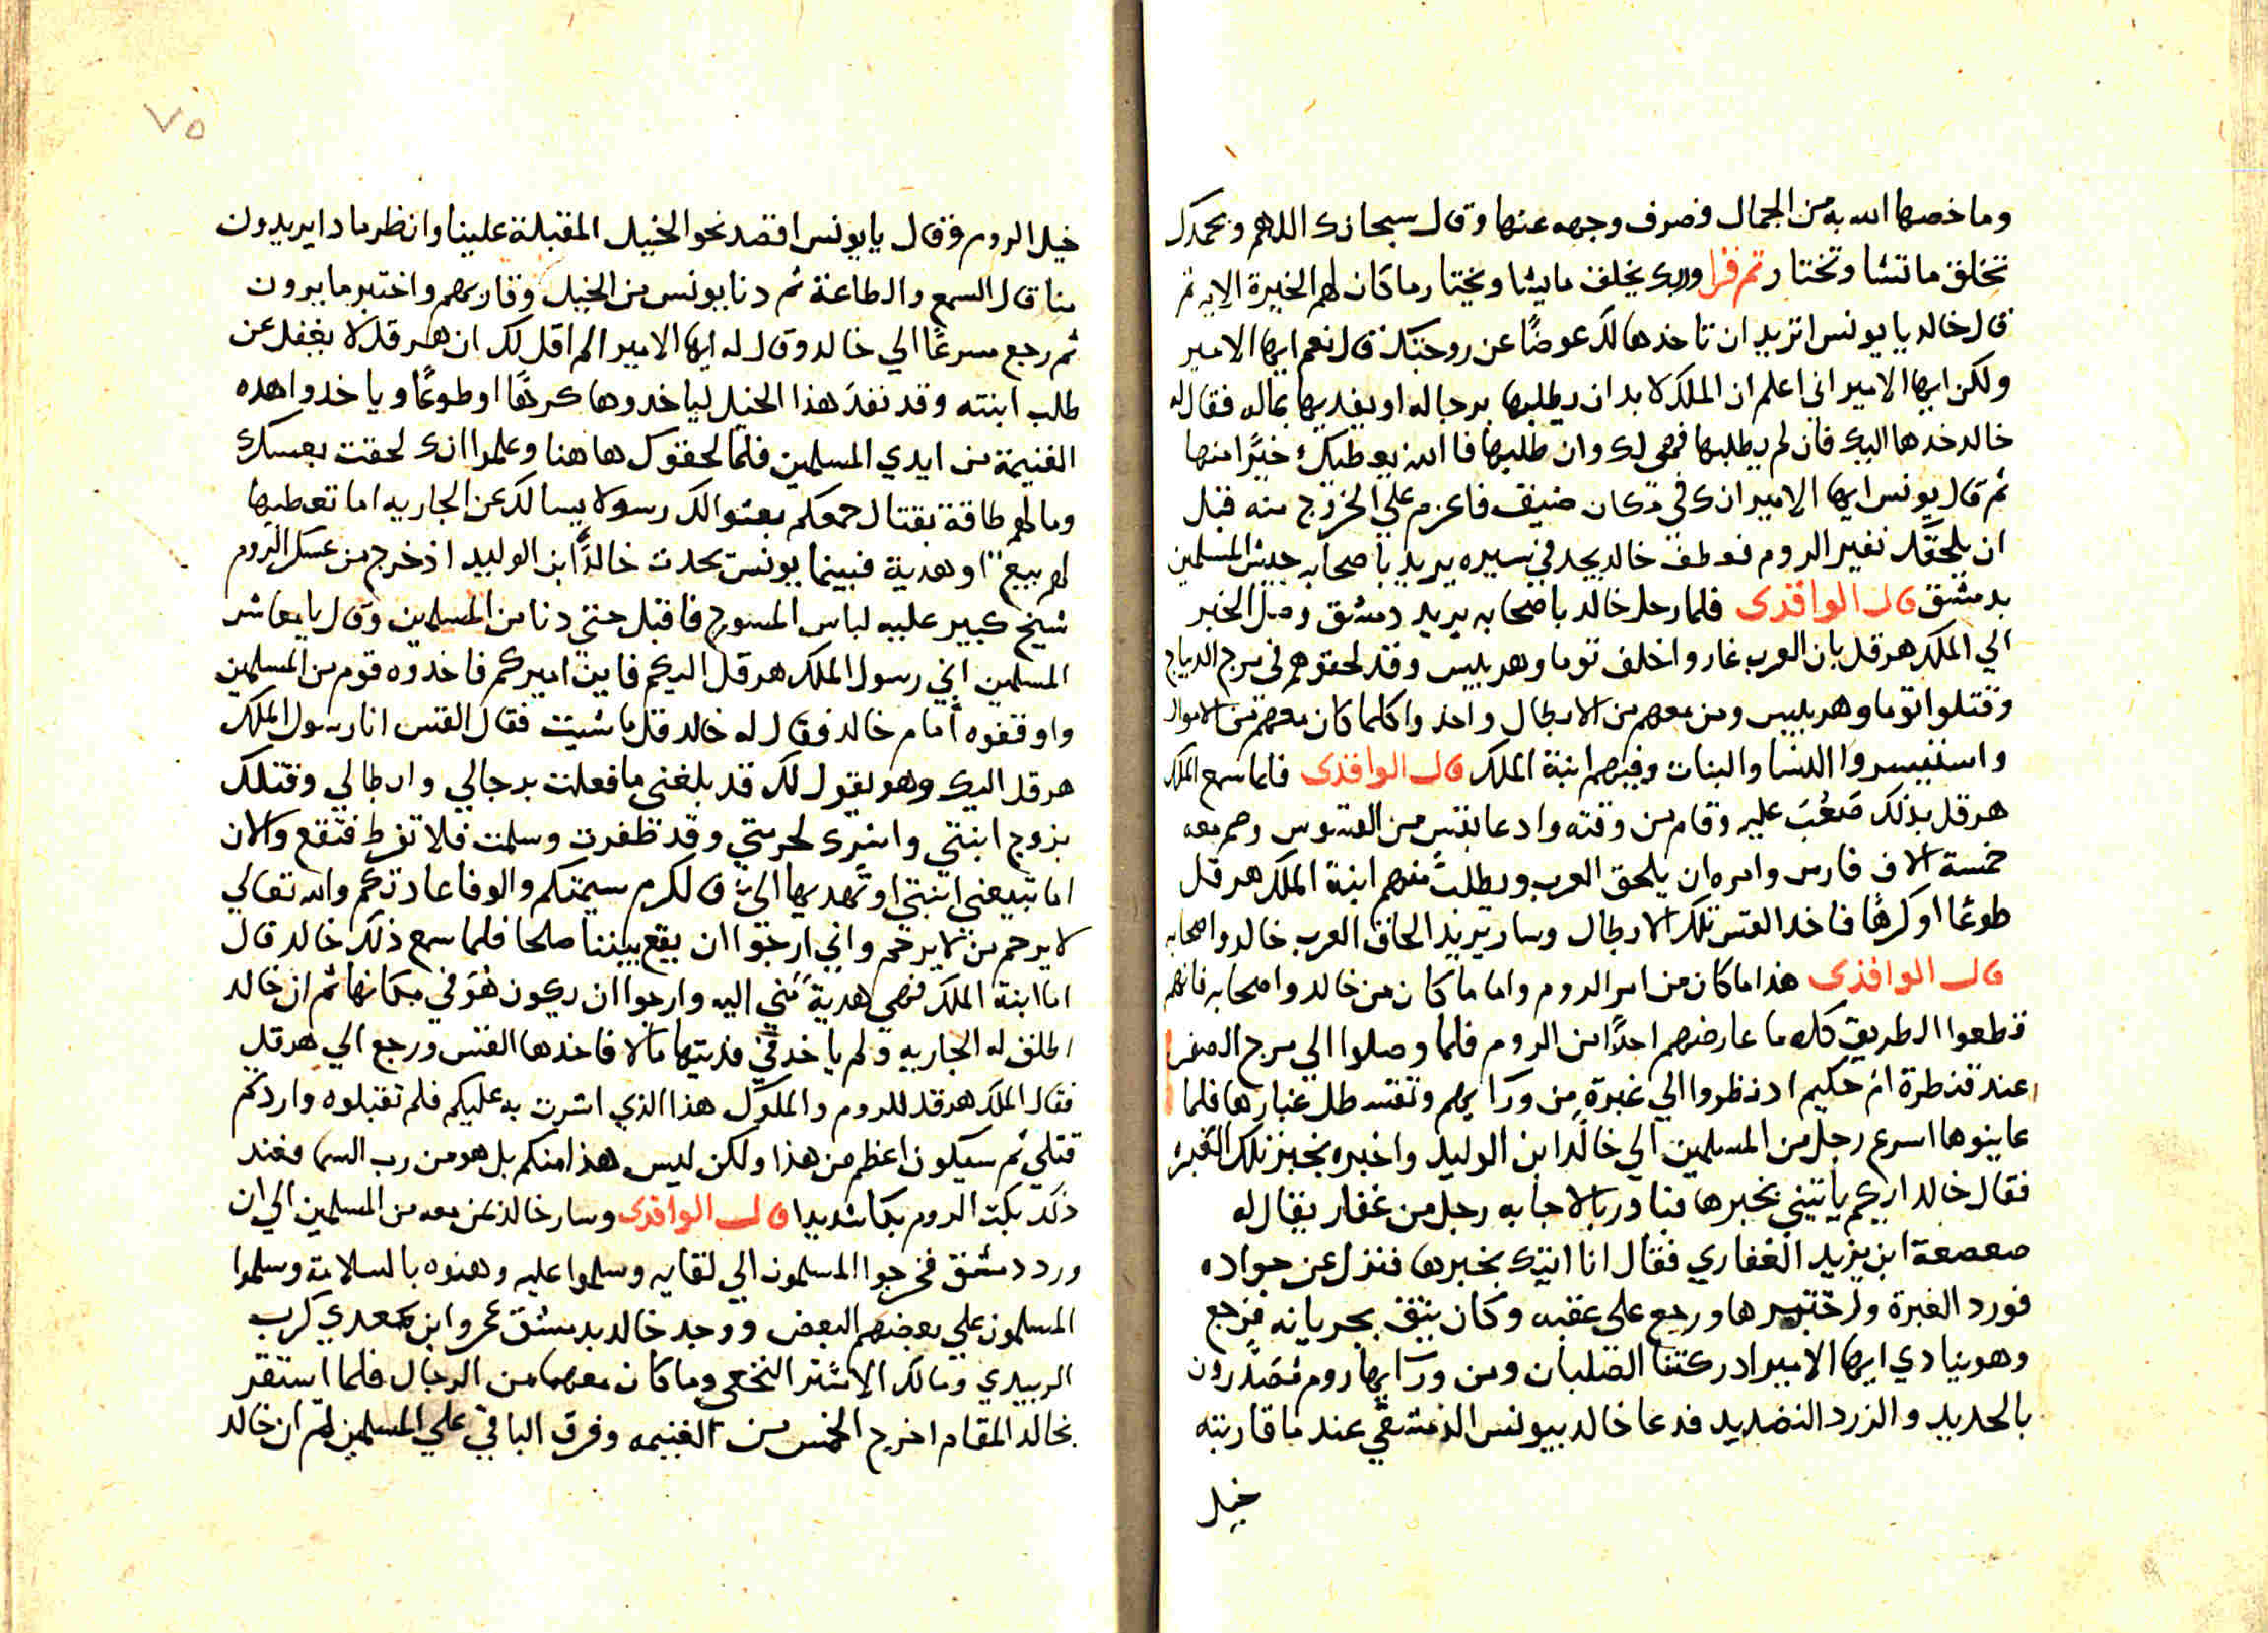 وما خصها الله به من الجمال فصرف وجهه عنها وقال سبحانك اللهم وبحمدك
تخلق ما تشا وتختار ثم قرا وربك يخلق مايشا ويختار ما كان لهم الخيرة الايه ثم
قال خالد يا يونس اتريد ان تاخذها لك عوضًا عن زوجتك قال نعم ايها الامير
ولكن ايها الامير اني اعلم ان الملك لا بد ان يطلبها برجاله او يفديها بماله فقال له
خالد خدها اليك فان لم يطلبها فهي لك وان طلبها فا الله يعطيك خيرًا منها
ثم قال يونس ايها الامير انك في مكان ضيق فاعزم علي الخروج منه قبل
ان يلحقك نفير الروم فعطف خالد يجد في سيره يريد باصحابه جيش المسلمين
بدمشق قال الواقدى فلما رحل خالد باصحابه يريد دمشق وصل الخبر
الي الملك هرقل بان العرب غاروا خلف توما وهربيس وقد لحقوهم في مرج الديباج
وقتلوا توما وهربيس ومن معهم من الابطال واخذوا كلما كان معهم من الاموال
واستيسروا النسا والبنات وفيهم ابنة الملك قال الواقدى فلما سمع الملك
هرقل بذلك صَعُبَ عليه وقام من وقته وادعا بقس من القسوس وضم معه
خمسة الاف فارس وامره ان يلحق العرب ويطلب منهم ابنة الملك هرقل
طوعًا او كرهًا فاخذ القس تلك الابطال وسار يريد الحاق العرب خالد واصحابه
قال الواقدى هذا ما كان من امر الروم واما ما كان من خالد واصحابه فانهم
قطعوا الطريق كله ما عارضهم احدًا من الروم فلما وصلوا الي مرج الصفر
عند قنطرة ام حكيم اد نظروا الي غبرة من ورآيهم وتقسطل غبارها فلما
عاينوها اسرع رجل من المسلمين الي خالدًا ابن الوليد واخبره بخبر تلك الغبره
فقال خالد ايكم ياتيني بخبرها فبادر بالاجابه رجل من غفار يقال له
صعصعة ابن يزيد الغفاري فقال انا اتيك بخبرها فنزل عن جواده
فورد الغبرة واختبرها ورجع علي عقبه وكان يثق بجريانه فرجع
وهو ينادي ايها الامير ادركتنا الصلبان ومن ورآيها روم مُصَدرون
بالحديد والزرد النضديد فدعا خالد بيونس الدمشقي عند ما قاربته
خيل
٧٥
خيل الروم وقال يا يونس اقصد نحو الخيل المقبلة علينا وانظر ما دا يريدون
منا قال السمع والطاعة ثم دنا يونس من الخيل وقاربهم واختبر ما يرون
ثم رجع مسرعًا الي خالد وقال له ايها الامير الم اقل لك ان هرقل لا يغفل عن
طلب ابنته وقد نفدَ هذا الخيل لياخدوها كرهًا او طوعًا وياخدوا هده
الغنيمة من ايدي المسلمين فلما لحقوك هاهنا وعلموا انك لحقت بعسكرك
وما لهم طاقة بقتال جمعكم بعثوا لك رسولا يسالك عن الجاريه اما تعطيها
لهم بيعًا او هدية فبينما يونس يحدث خالدًا ابن الوليد اذ خرج من عسكر الروم
شيخ كبير عليه لباس المسوح فاقبل حتي دنا من المسلمين وقال يا معاشر
المسلمين اني رسول الملك هرقل اليكم فاين اميركم فاخدوه قوم من المسلمين
واوقفوه أمام خالد فقال له خالد قل ما شيت فقال القس انا رسول الملك
هرقل اليك وهو يقول لك قد بلغني ما فعلت برجالي وابطالي وقتلك
بزوج ابنتي واسرك لحرمتي وقد ظفرت وسلمت فلا تفرط فتقع والان
اما تبيعني ابنتي او تهديها الي فالكرم سيمتكم والوفا عادتكم والله تعالي
لا يرحم من لا يرحم واني ارجوا ان يقع بيننا صلحا فلما سمع ذلك خالد قال
اما ابنة الملك فهي هدية مني اليه وارجوا ان يكون هُوَ في مكانها ثم ان خالد
اطلق له الجاريه ولم ياخد في فديتها مالا فاخذها القس ورجع الي هرقل
فقال الملك هرقل للروم والملوك هذا الذي اشرت به عليكم فلم تقبلوه واردتم
قتلي ثم سيكون اعظم من هذا ولكن ليس هذا منكم بل هو من رب السما فعند
ذلك بكت الروم بكا شديدا قال الواقدى وسار خالد بمن معه من المسلمين الي ان
ورد دمشق فخرجوا المسلمون الي لقايه وسلموا عليه وهنوه بالسلامة وسلموا
المسلمون علي بعضهم البعض ووجد خالد بدمشق عمرو ابن معدي كرب
الزبيدي ومالك الاشتر النخعي وما كان معهما من الرجال فلما استقر
بخالد المقام اخرج الخمس من الغنيمه وفرق الباقي علي المسلمين ثم ان خالد